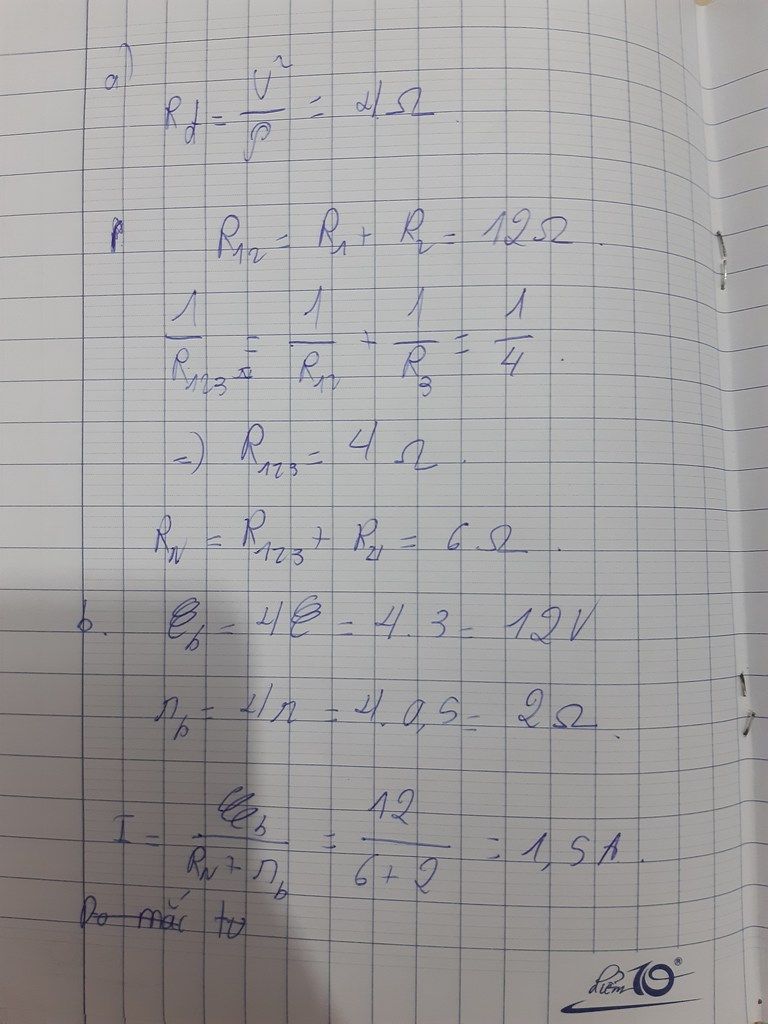 a)
Rđ = U²/P = 4Ω
R₁₂ = R₁ + R₂ = 12Ω.
1/R₁₂₃ = 1/R₁₂ + 1/R₃ = 1/4.
=) R₁₂₃ = 4 Ω.
R_N = R₁₂₃ + R₄ = 6 Ω.
b. ℰ_b = 4ℰ = 4.3 = 12V
r_b = 4r = 4.0,5 = 2Ω.
I = ℰ_b/(R_N + r_b) = 12/(6+2) = 1,5A.
Do mắc tụ
điểm 10®